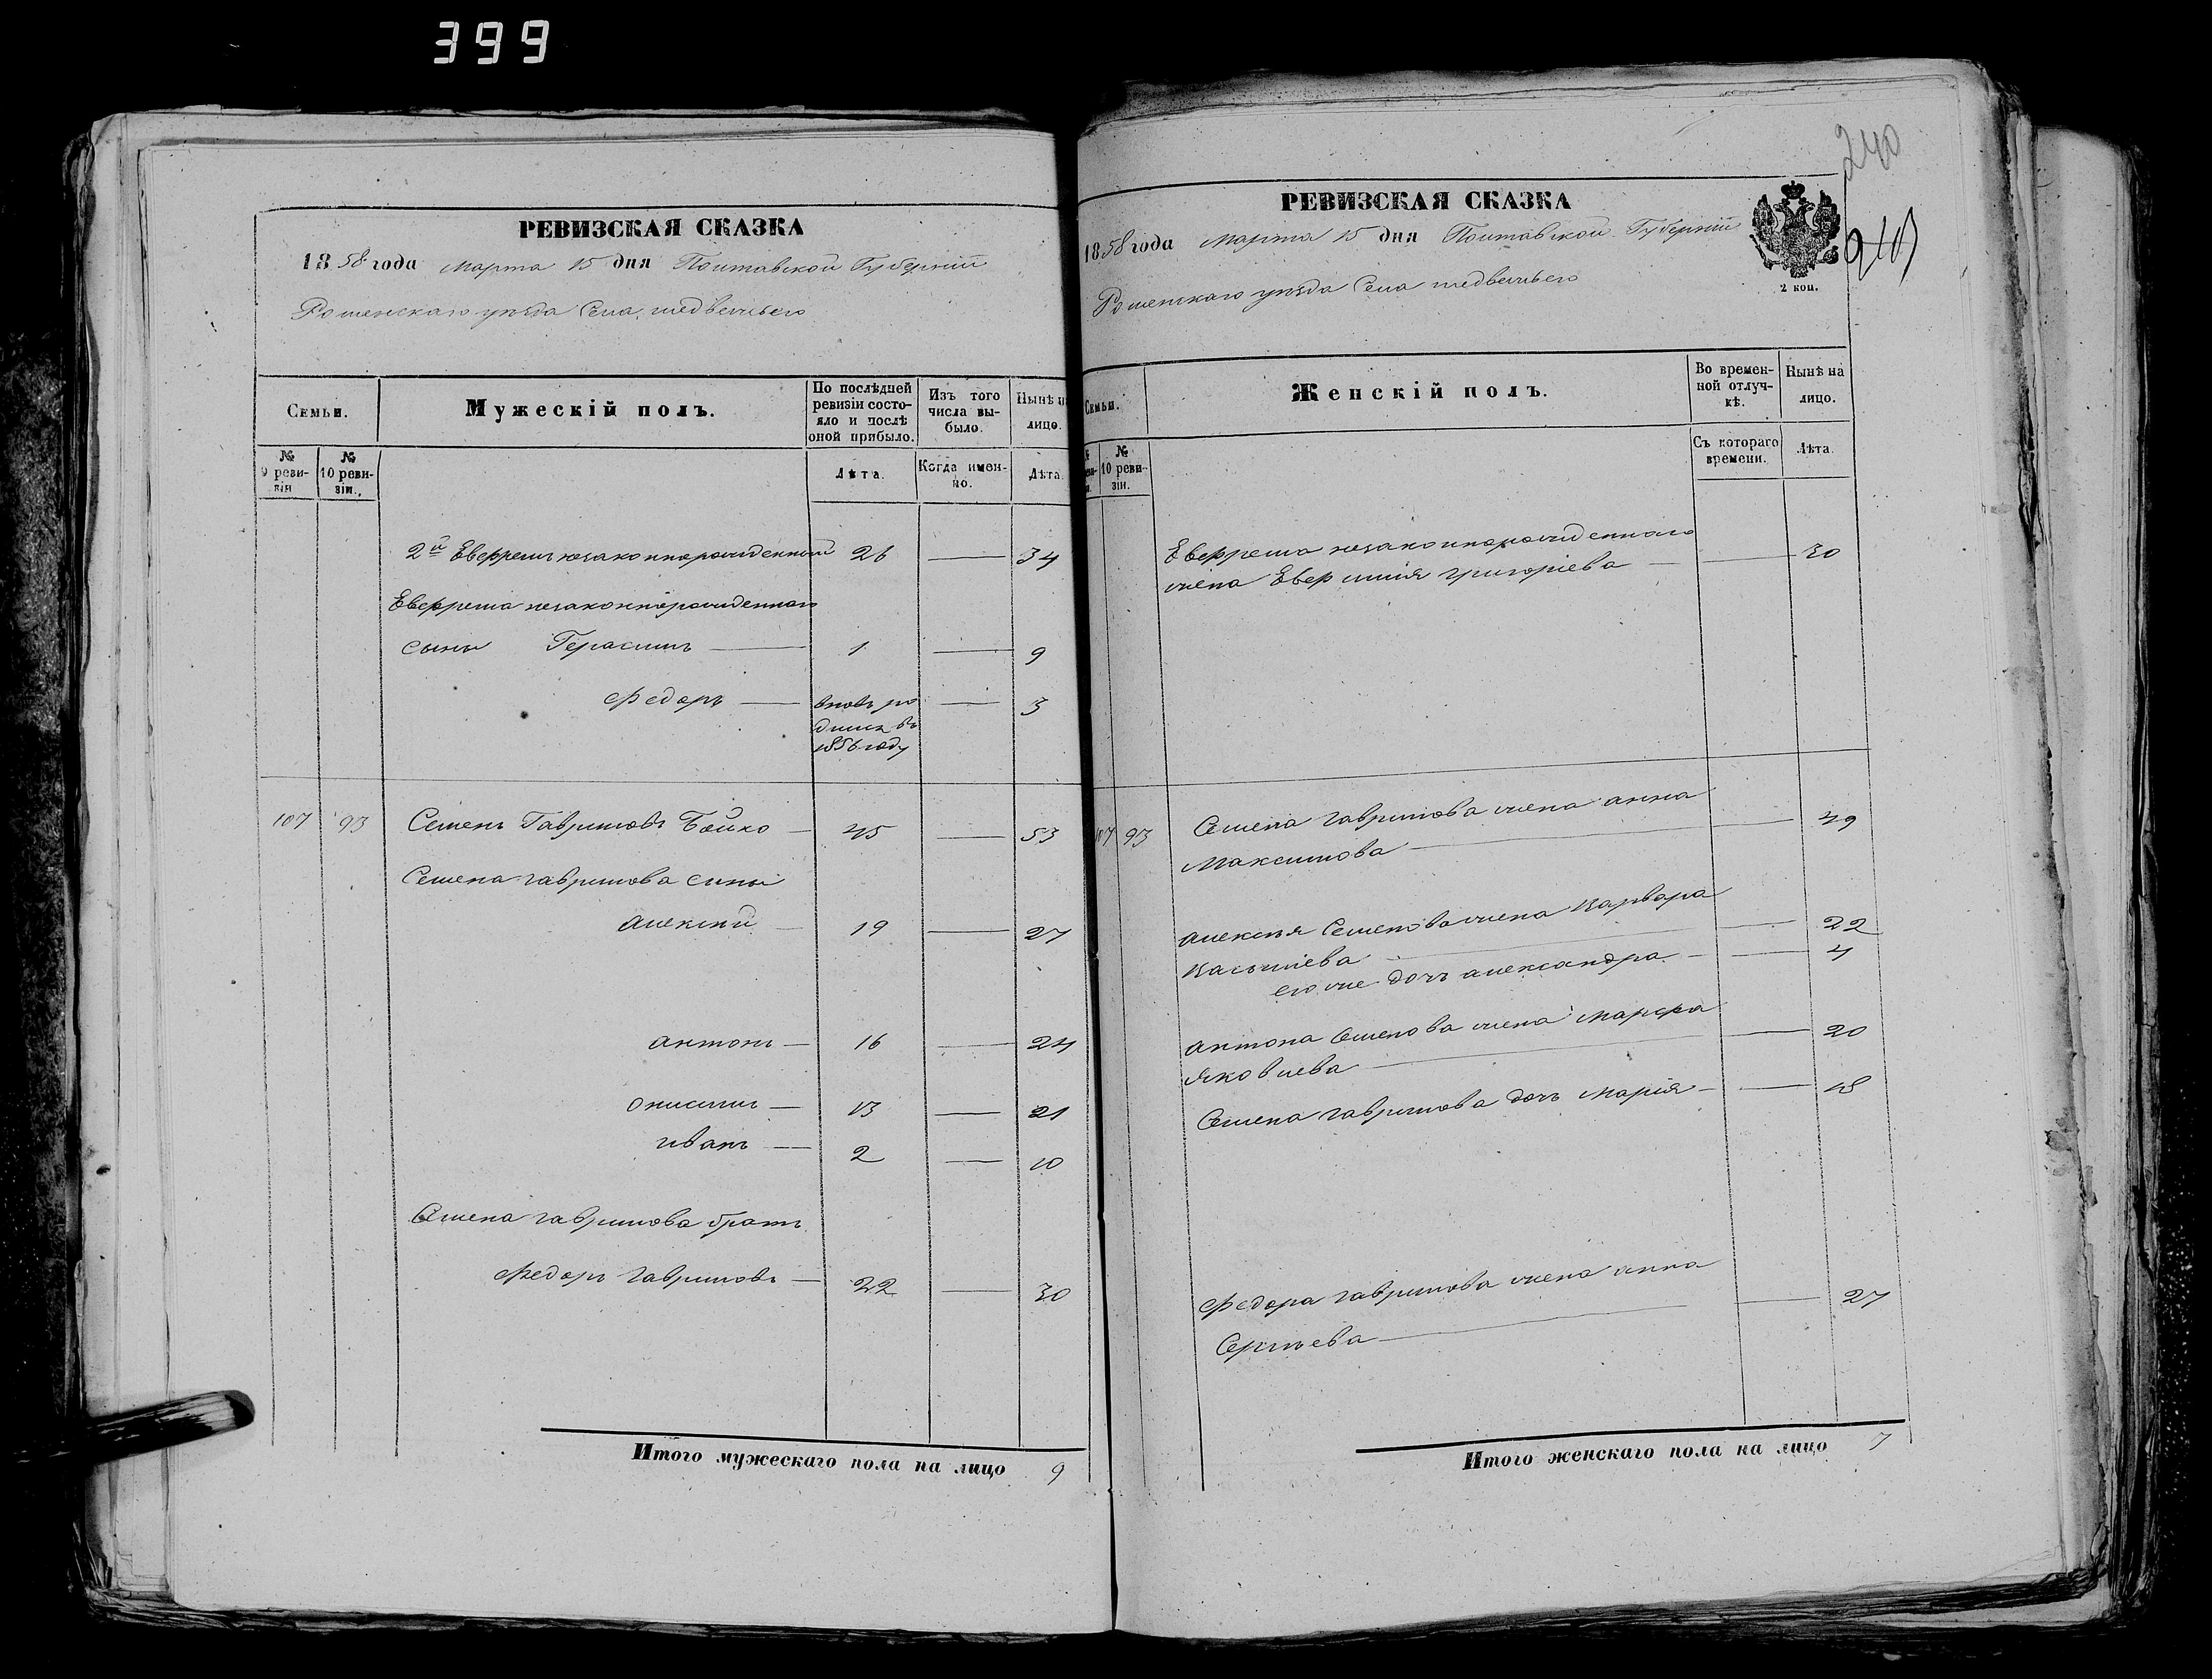 399
РЕВИЗСКАЯ СКАЗКА
1858 года Марта 15 дня Полтавской Губерніи
Роменскаго уѣзда Села Медвежьего
Семьи.
Мужескій полъ.
По послѣдней ревизіи состояло и послѣ оной прибыло.
Изъ того числа выбыло.
Нынѣ на лицо.
№ 9 ревизіи
№ 10 ревизіи.
Лѣта.
Когда именно.
Лѣта.
2й Евфремъ незаконнорожденный 26 — 34
Евфрема незаконнорожденнаго
сыны Герасимъ — 1 — 9
Федоръ — вновь ро — 3
дился въ
1856 году
107 93 Семенъ Гавриловъ Бойко — 45 — 53
Семена Гаврилова сыны
Алексѣй — 19 — 27
Антонъ — 16 — 24
Онисимъ — 13 — 21
Иванъ — 2 — 10
Семена Гаврилова братъ
Федоръ Гавриловъ — 22 — 30
Итого мужескаго пола на лицо 9
240
РЕВИЗСКАЯ СКАЗКА
1858 года Марта 15 дня Полтавской Губерніи
Роменскаго уѣзда Села Медвежьего
2 коп.
Семьи.
Женскій полъ.
Во временной отлучкѣ.
Нынѣ на лицо.
№ 10 ревизіи.
Съ котораго времени.
Лѣта.
Евфрема незаконнорожденнаго
жена Евфимія Григоріева — — 30
107 93 Семена Гаврилова жена Анна — 49
Максимова —
Алексѣя Семенова жена Варвара — 22
Васильева —
его же дочь Александра — — 4
Антона Семенова жена Марфа — 20
Яковлева —
Семена Гаврилова дочь Марія — — 18
Федора Гаврилова жена Анна — 27
Сергѣева —
Итого женскаго пола на лицо 7